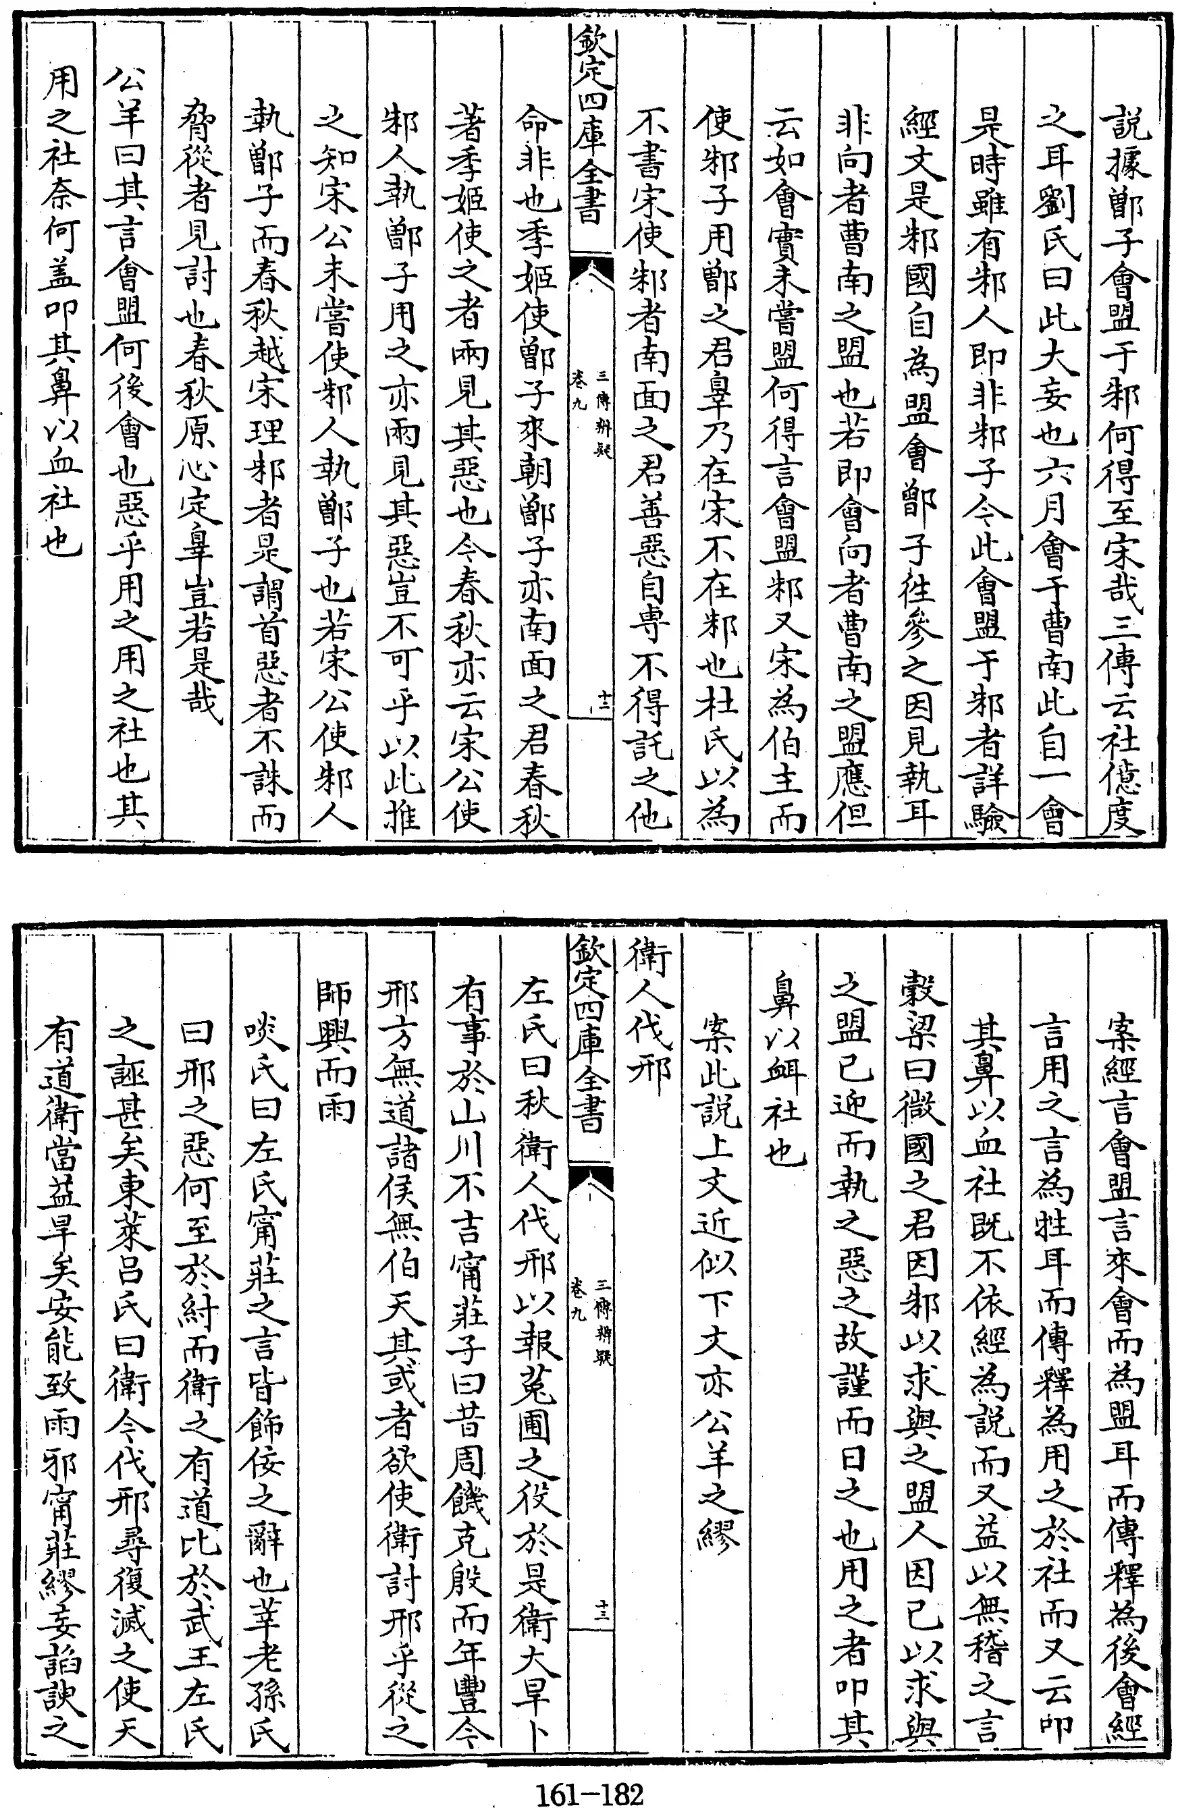 說據鄫子會盟于邾何得至宋哉三傳云社億度
之耳劉氏曰此大妄也六月會于曹南此自一會
是時雖有邾人即非邾子今此會盟于邾者詳驗
經文是邾國自為盟會鄫子往參之因見執耳
非向者曹南之盟也若即會向者曹南之盟應但
云如會實未嘗盟何得言會盟邾又宋為伯主而
使邾子用鄫之君辠乃在宋不在邾也杜氏以為
不書宋使邾者南面之君善惡自専不得託之他
欽定四庫全書
三傳辨疑
卷九
十二
命非也季姬使鄫子來朝鄫子亦南面之君春秋
著季姬使之者兩見其惡也今春秋亦云宋公使
邾人執鄫子用之亦兩見其惡豈不可乎以此推
之知宋公未嘗使邾人執鄫子也若宋公使邾人
執鄫子而春秋越宋理邾者是謂首惡者不誅而
脅從者見討也春秋原心定辠豈若是哉
公羊曰其言會盟何後會也惡乎用之用之社也其
用之社奈何盖叩其鼻以血社也
案經言會盟言來會而為盟耳而傳釋為後會經
言用之言為牲耳而傳釋為用之於社而又云叩
其鼻以血社既不依經為説而又益以無稽之言
穀梁曰微國之君因邾以求與之盟人因己以求與
之盟已迎而執之惡之故謹而日之也用之者叩其
鼻以衈社也
案此説上文近似下文亦公羊之繆
衛人伐邢
欽定四庫全書
三傳辨疑
卷九
十三
左氏曰秋衛人伐邢以報菟圃之役於是衛大旱卜
有事於山川不吉甯莊子曰昔周饑克殷而年豐今
邢方無道諸侯無伯天其或者欲使衛討邢乎從之
師興而雨
啖氏曰左氏甯莊之言皆飾佞之辭也莘老孫氏
曰邢之惡何至於紂而衛之有道比於武王左氏
之誣甚矣東萊呂氏曰衛今伐邢尋復滅之使天
有道衛當益旱矣安能致雨邪甯莊繆妄諂諛之
161-182